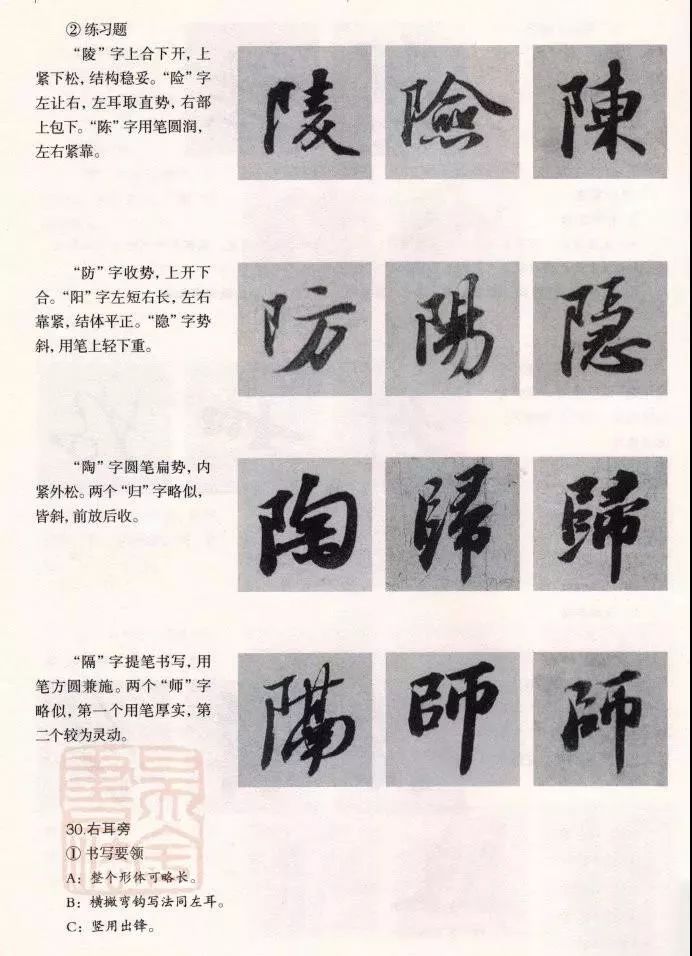 ② 练习题
“陵”字上合下开，上
紧下松，结构稳妥。“险”字
左让右，左耳取直势，右部
上包下。“陈”字用笔圆润，
左右紧靠。
陵 險 陳
“防”字收势，上开下
合。“阳”字左短右长，左右
靠紧，结体平正。“隐”字势
斜，用笔上轻下重。
防 陽 隱
“陶”字圆笔扁势，内
紧外松。两个“归”字略似，
皆斜，前放后收。
陶 歸 歸
“隔”字提笔书写，用
笔方圆兼施。两个“师”字
略似，第一个用笔厚实，第
二个较为灵动。
隔 師 師
30.右耳旁
① 书写要领
A：整个形体可略长。
B：横撇弯钩写法同左耳。
C：竖用出锋。